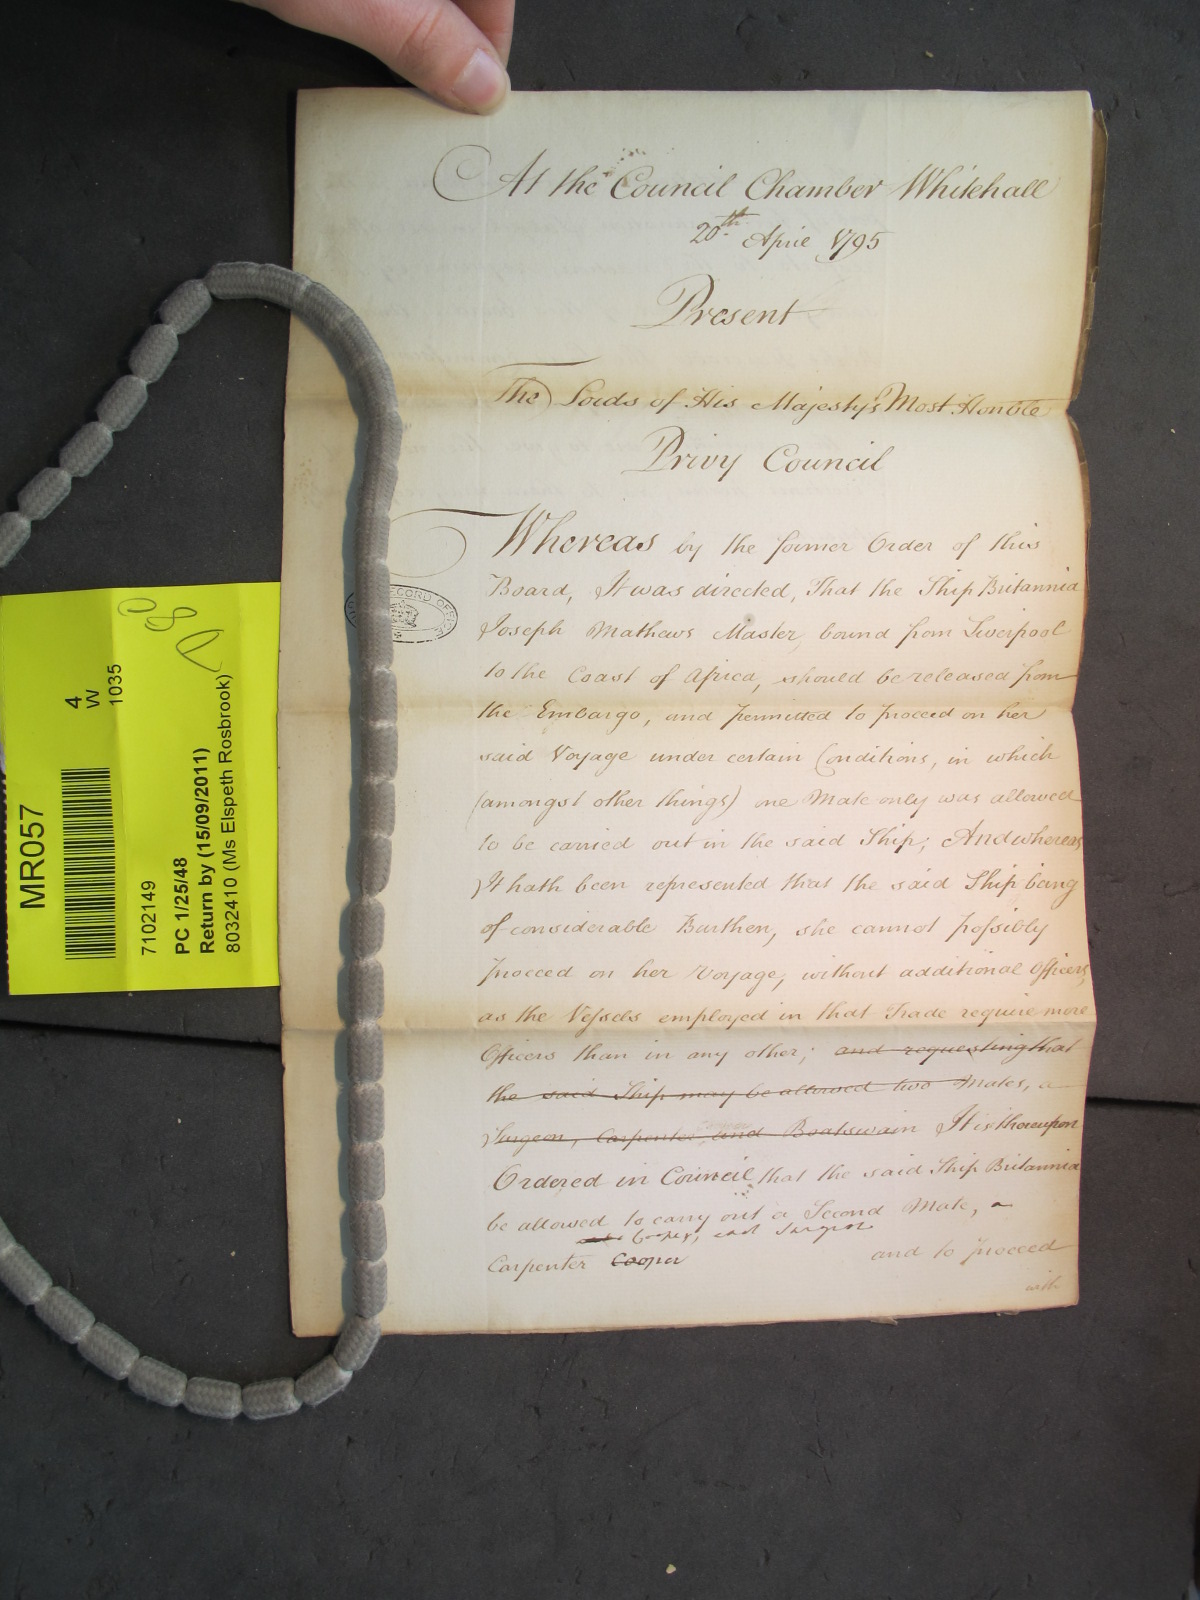 At the Council Chamber Whitehall
20th April 1795
Present
The Lords of His Majesty's Most Honble
Privy Council
Whereas by the former Order of this
Board, It was directed, That the Ship Britannia
Joseph Mathews Master, bound from Liverpool
to the Coast of Africa, should be released from
the Embargo, and permitted to proceed on her
said Voyage under certain Conditions, in which
(amongst other things) one Mate only was allowed
to be carried out in the said Ship; And whereas
It hath been represented that the said Ship being
of considerable Burthen, she cannot possibly
proceed on her Voyage, without additional Officers,
as the Vessels employed in that Trade require more
Officers than in any other; and requesting that
the said Ship may be allowed two Mates, a
Surgeon, Carpenter, and Boatswain It is thereupon
Ordered in Council that the said Ship Britannia
be allowed to carry out a Second Mate, a
Cooper, and Surgeon
Carpenter Cooper and to proceed
with
RECORD OFFICE
MR057
4
W
1035
7102149
PC 1/25/48
Return by (15/09/2011)
8032410 (Ms Elspeth Rosbrook)